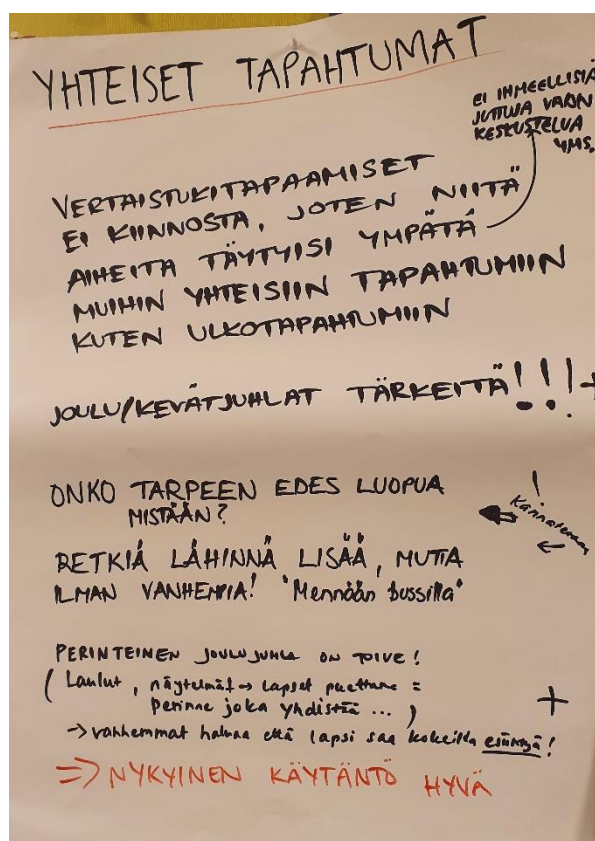 YHTEISET TAPAHTUMAT
EI IHMEELLISIÄ
JUTTUJA VAAN
KESKUSTELUA
YMS.
VERTAISTUKITAPAAMISET
EI KIINNOSTA, JOTEN NIITÄ
AIHEITA TÄYTYISI YMPÄTÄ
MUIHIN YHTEISIIN TAPAHTUMIIN
KUTEN ULKOTAPAHTUMIIN
JOULU/KEVÄTJUHLAT TÄRKEITÄ!!! +
ONKO TARPEEN EDES LUOPUA
MISTÄÄN?
!
Kannatetaan
RETKIÄ LÄHINNÄ LISÄÄ, MUTTA
ILMAN VANHEMPIA! "Mennään bussilla"
PERINTEINEN JOULUJUHLA ON TOIVE!
(Laulut, näytelmät → lapset puettuna =
perinne joka yhdistää ...)
+
→ vanhemmat haluaa että lapsi saa kokeilla esiintyä!
=> NYKYINEN KÄYTÄNTÖ HYVÄ